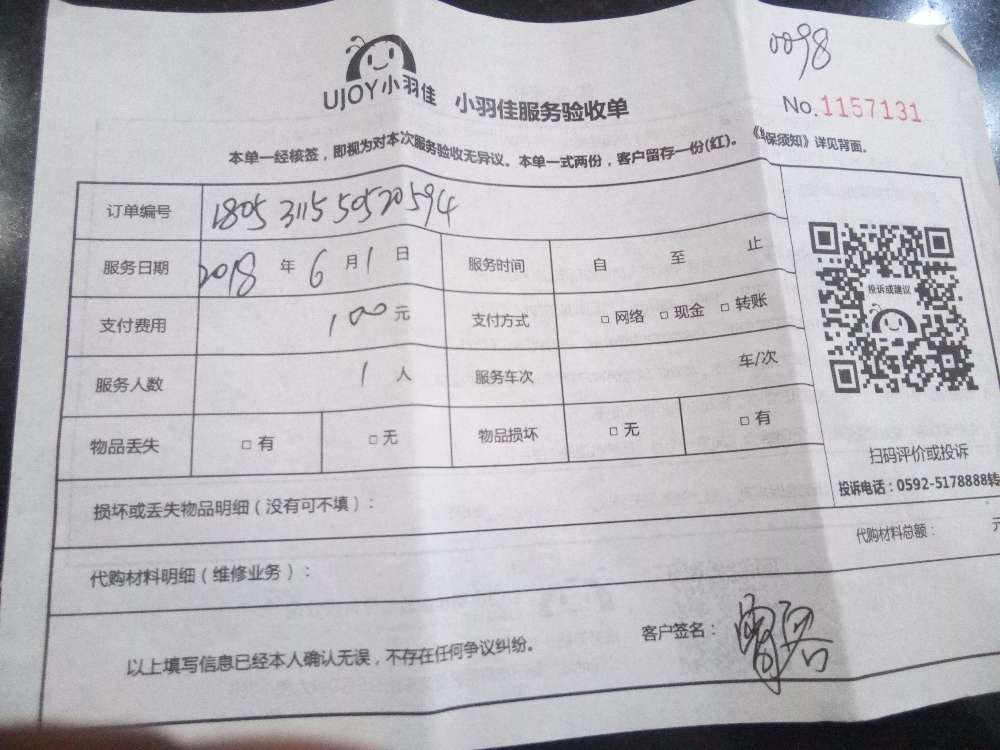 0098
UJOY小羽佳 小羽佳服务验收单
No.1157131
本单一经核签，即视为对本次服务验收无异议。本单一式两份，客户留存一份(红)。
保须知》详见背面。
订单编号 1805311550520594
服务日期 2018 年 6 月 1 日 服务时间 自 至 止
投诉或建议
支付费用 100 元 支付方式 □ 网络 □ 现金 □ 转账
服务人数 1 人 服务车次 车/次
物品丢失 □ 有 □ 无 物品损坏 □ 无 □ 有
扫码评价或投诉
投诉电话：0592-5178888转
损坏或丢失物品明细（没有可不填）：
代购材料明细（维修业务）：
代购材料总额： 元
以上填写信息已经本人确认无误，不存在任何争议纠纷。
客户签名：